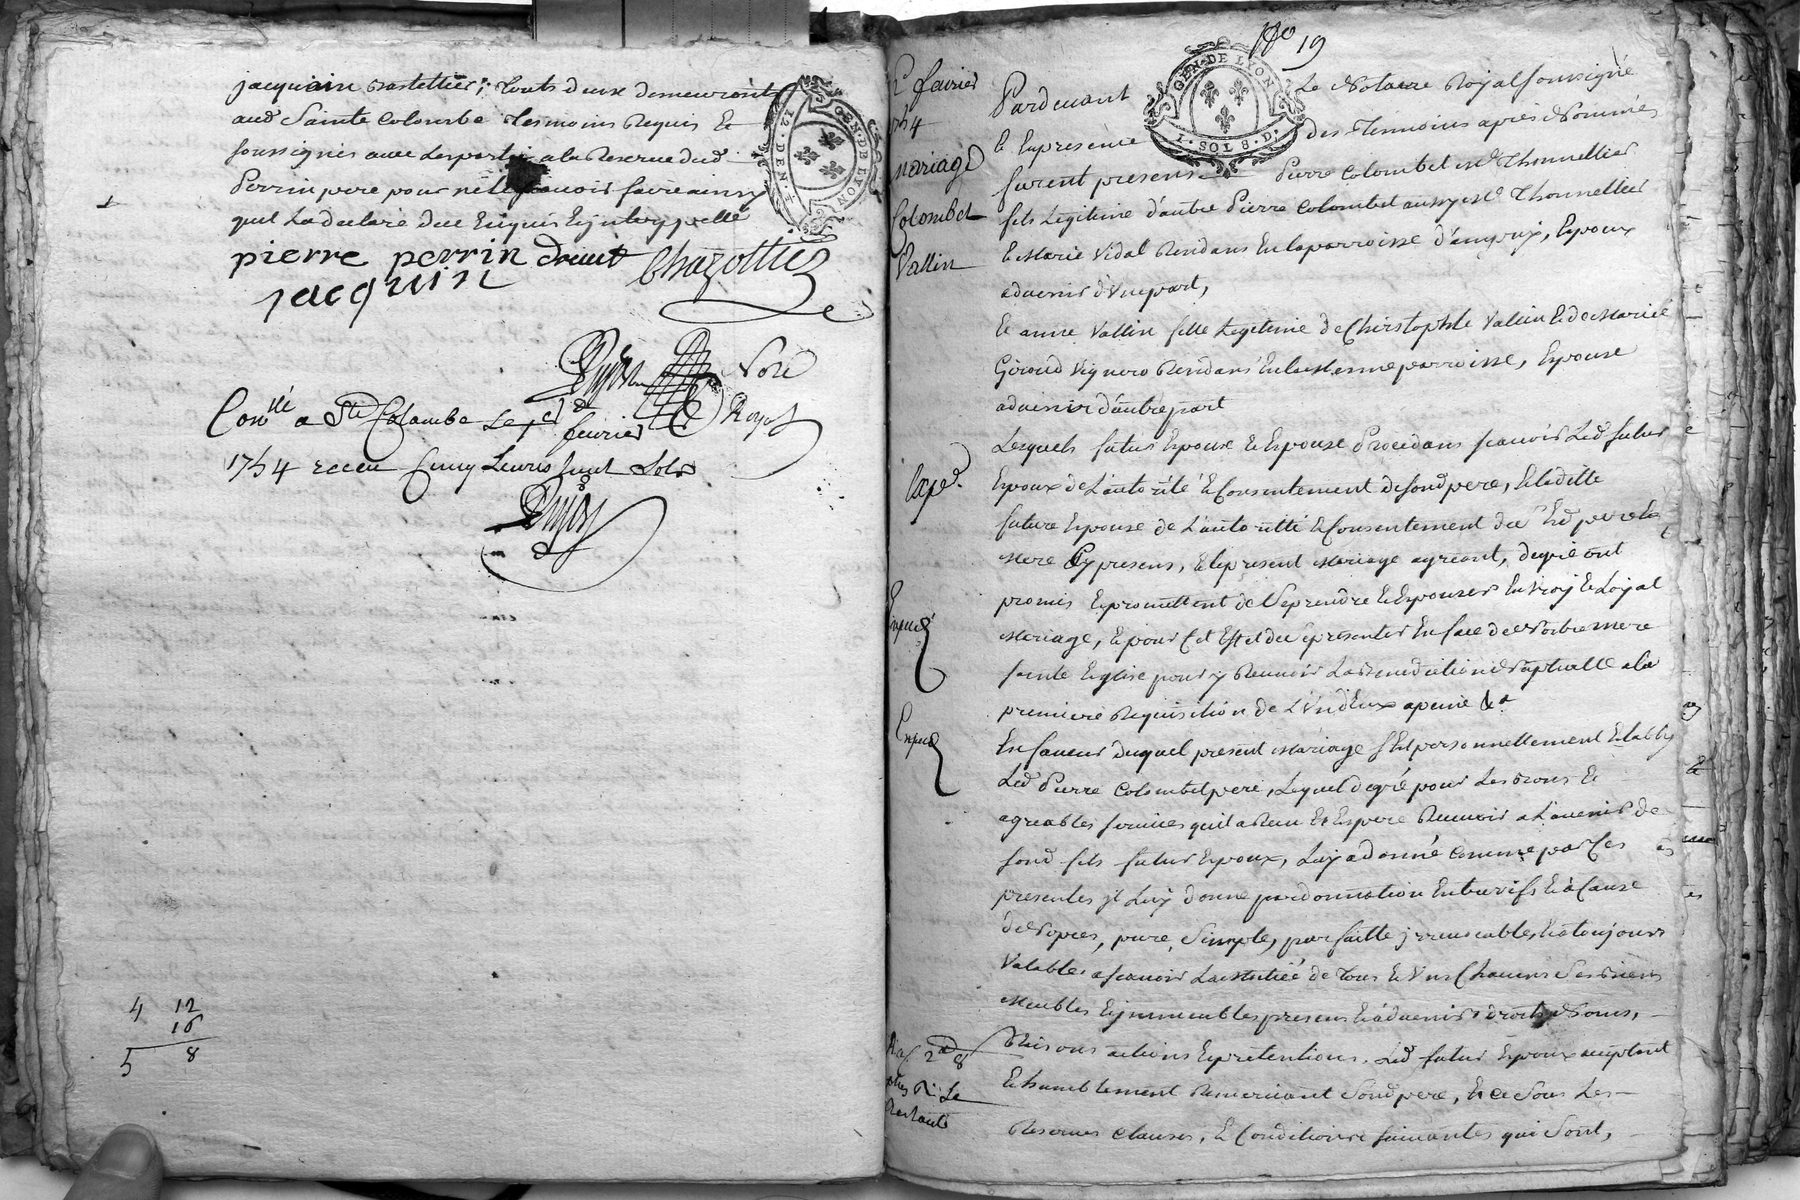 jacquin rastellier, touts deux demeurants
aud Sainte Colombe tesmoins Requis Et
soussignés avec les parties a la Reserve dud
Perrin pere pour ne le scavoir faire ainsy
quil La declaré deue Enquis Et interpellé
pierre perrin drivet Chazottier
jacquin
Dujast Nore
Royal
Con.llé a Ste Colombe Le 1er fevrier
1754 receu Cinq Livres huit sols
Dujast
4 12
16
5 8
GEN. DE LYON
12. DEN. 4
110 19
GEN. DE LYON
1. SOL 8 D.
2e fevrier
1754
mariage
Colombet
Vallin
Pardevant Le Notaire Royal soussigné
Et En presence des Temoins aprés Nommés
furent presens Pierre Colombet me Thonnellier
fils Legitime d'autre Pierre Colombet aussy me Thonnellier
Et Marie Vidal Residans En la parroisse d'ampuix, Epoux
advenir d'Une part,
Et anne Vallin fille Legitime de Christophle Vallin Et de Marie
Giroud Vigneron Residans En la mesme parroisse, Epouse
advenir d'autre part
Lesquels futurs Epoux Et Epouse Procedans scavoir Led futur
Expéd.
Epoux de L'autorité Et Consentement de sond pere, Et ladite
future Epouse de L'autorité Et Consentement de sesd pere Et
mere Cy presens, Et le present Mariage agreant, de gré ont
promis Et promettent de Se prendre Et Epouser En vray Et Loyal
Mariage, Et pour Cet Effet de Se presenter En face de Notre mere
sainte Eglise pour y Recevoir La Benediction Nuptialle a la
premiere Requisition de L'Un d'Eux a peine &a
En faveur duquel present Mariage s'Est personnellement Etably
Led Pierre Colombet pere, Lequel de gré pour Les bons Et
agreables services qu'il a Receu Et Espere Recevoir a L'avenir de
sond fils futur Epoux, Luy a donné comme par Ces
presentes il Luy donne par donnation Entrevifs Et à Cause
de Nopces, pure, Simple, parfaitte, irrevocable, Et a toujours
Valable, a scavoir La Moitié de tous Et Uns Chacuns Ses biens
Meubles Et immeubles presens Et à advenir, droits, Noms,
Raisons actions Et pretentions. Led futur Epoux acceptant
Et humblement Remerciant Sond pere, Et ce Sous Les
Reserves Clauses, Et Conditions suivantes qui Sont,